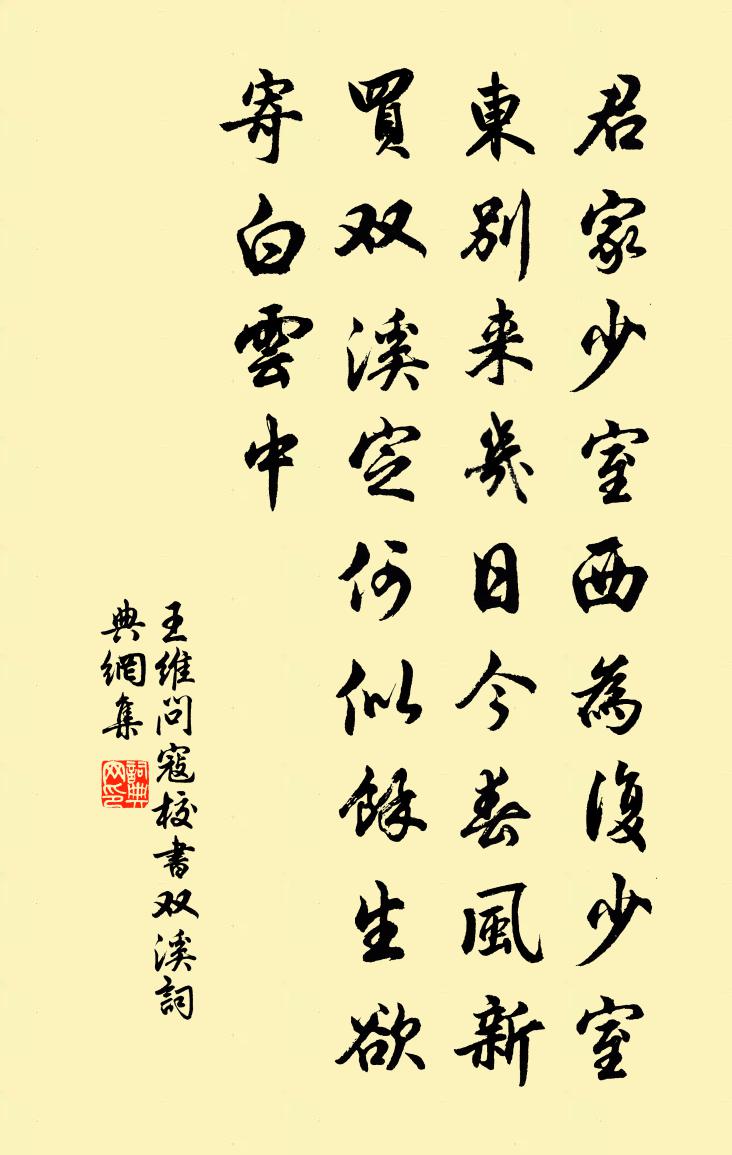 君家少室西為復少室
東別来幾日今春風新
買双溪定何似餘生欲
寄白雲中
王維問寇校書双溪詞
典網集
詞典
网印